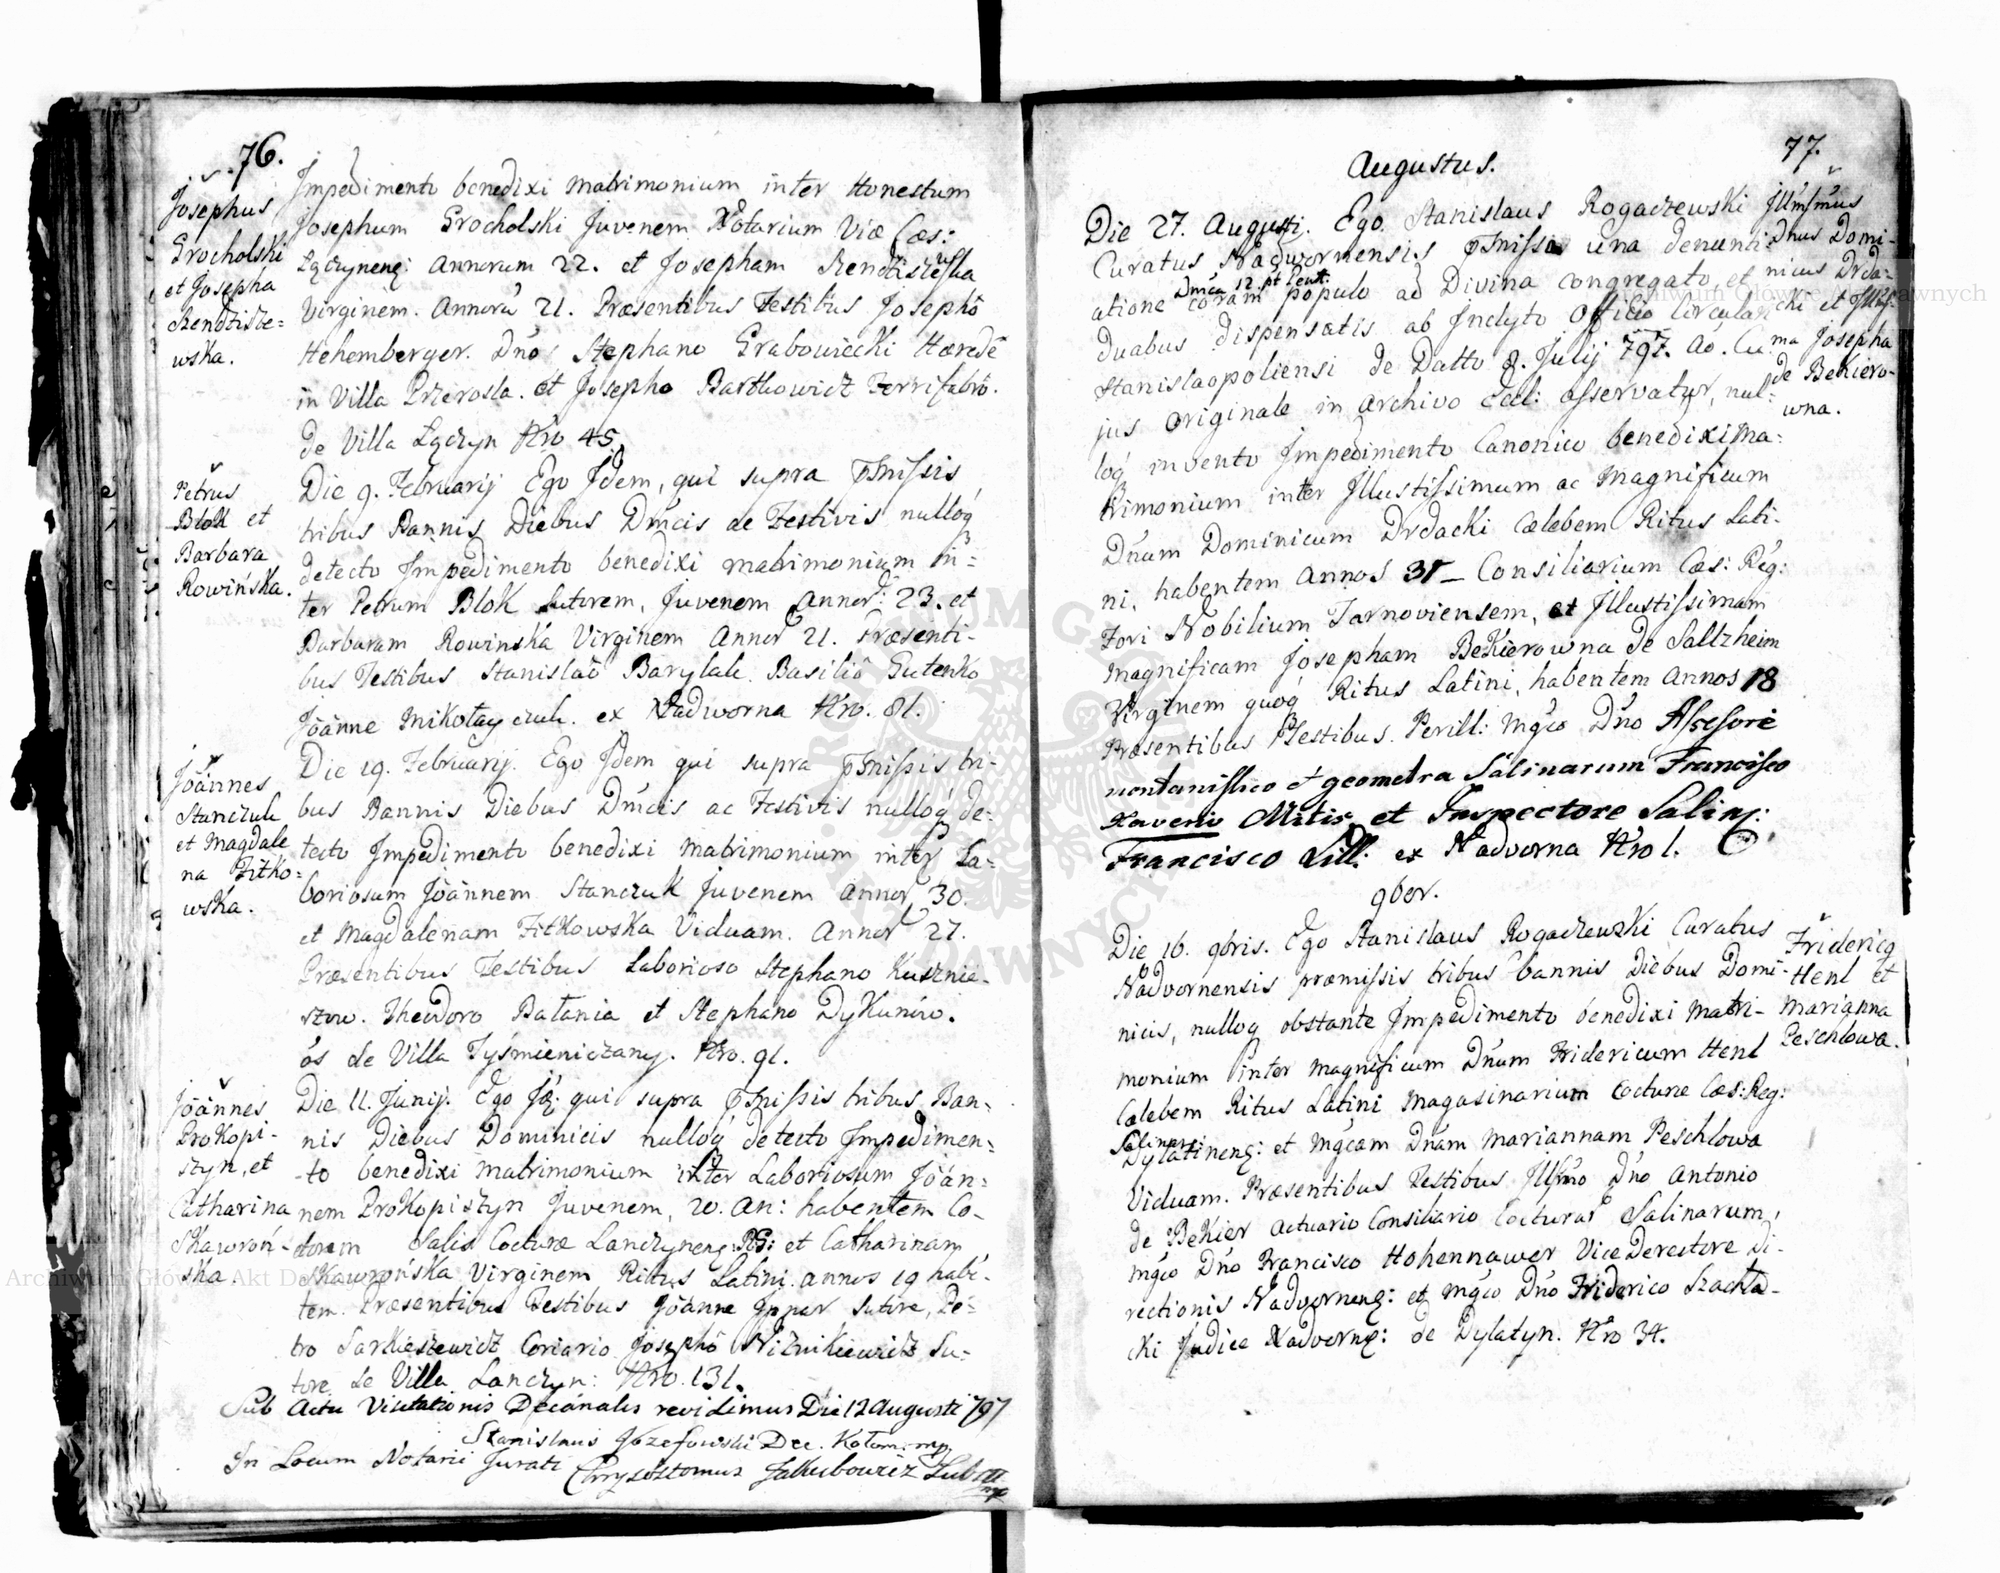 76.
Josephus
Grocholski
et Josepha
Rendzisze=
wska.
Impedimento benedixi Matrimonium inter Honestum
Josephum Grocholski Juvenem Notarium Viæ Cæs:
Annorum 22. et Josepham
Virginem. Annorũ 21. Præsentibus Testibus Josephô
Hehemberger. Dño Stephano Grabowiecki Hæredê
in Villa Przerosla. et Josepho Bartkowicz Ferrifabrô.
de Villa Łączyn Nro 45.
Petrus
Blok et
Barbara
Rowińska.
Die 9. Februarij Ego Idem, qui supra
tribus Bannis Diebus Dñicis ac Festivis nulloq́
detecto Impedimento benedixi matrimonium in=
ter Petrum Blok Sutorem, Juvenem Annor: 23. et
Barbaram Rowinska Virginem Annor 21. Præsenti-
bus Testibus Stanislaô Barylak. Basiliô Gutenko
Jõanne Mikołayczuk. ex Nadworna Nro. 81.
Jõannes
Stanczuk
et Magdale
na Fitko=
wska.
Die 19. Februarij. Ego Idem qui supra pmissis tri-
bus Bannis Diebus Dñicis ac Festivis nulloq́ de=
tecto Impedimento benedixi Matrimonium inter La=
boriosum Jõannem Stanczuk Juvenem Annor 30.
et Magdalenam Fitkowska Viduam. Annor 27.
Præsentibus Testibus Laborioso Stephano Kusznie-
rzow. Theodoro Batania et Stephano Dykunów.
os de Villa Tyśmieniczany. Nro. 91.
Jõannes
Prokopi-
szyn, et
Catharina
Skawroń-
ska.
Die 11. Junij. Ego Id. qui supra pmissis tribus Ban=
nis Diebus Dominicis nulloq́ detecto Impedimen=
to benedixi Matrimonium inter Laboriosum Jõan=
nem Prokopiszyn Juvenem, 20. An: habentem Co-
ctorem Salis Cocturæ Lanczynens: RG: et Catharinam
Skawrońska Virginem Ritus Latini annos 19 habẽ-
tem. Præsentibus Testibus Jõanne Sutore, Pe-
tro Sarkieszewicz Coriario Josephô Niznikiewicz Su-
tore de Villa Lanczyn: Nro. 131.
Sub Actu Visitationis Decanalis revidimus Die 12 Augusti 797
Stanislaus Józefowski Dec. Kołom. mp
In Locum Notarii Jurati Chrysostomus Jakubowicz
77.
Augustus.
Illm̃us
Dnus Domi-
nicus Drda=
cki et Illus.
ma Josepha
de Bekiero-
wna.
Die 27. Augusti. Ego Stanislaus Rogaczewski
Curatus Nadwornensis pmissa una denunti-
Dñica 12 pt Pent:
atione coram populo ad Divina congregato, et
duabus dispensatis ab Inclyto Officio Circulari
Stanislaopoliensi de Datto 8. Julij 797. Aõ. Cu
jus Originale in Archivo Eccl: asservatur, nul=
loq́ invento Impedimento Canonico benedixi Ma=
trimonium inter Illustissimum ac Magnificum
Dñum Dominicum Drdacki Cælebem Ritus Lati-
ni, habentem Annos 31_ Consiliarium Cæs: Reg:
Fori Nobilium Tarnoviensem, et Illustissimam
Magnificam Josepham Bekierowna de Saltzheim
Virginem quoq́ Ritus Latini, habentem Annos 18
Præsentibus Testibus. Perill: Mgco Dño Assessore
montanistico et geometra Salinarum Francisco
Xaverio Mitis et Inspectore Salin:
Francisco Lill: ex Nadvorna Nro 1.
9bor.
Fridericq
Henl et
Marianna
Peschlowa.
Die 16. 9bris. Ego Stanislaus Rogaczewski Curatus
Nadvornensis præmissis tribus bannis Diebus Domi-
nicis, nulloq obstante Impedimento benedixi Matri-
monium inter Magnificum Dñum Fridericum Henl
Cælebem Ritus Latini Magasinarium Cocturæ Cæs: Reg:
Salinare:
Dylatinens: et Mgcam Dñam Mariannam Peschlowa
Viduam. Præsentibus Testibus Illmo Dño Antonio
de Bekier Actuario Consiliario Cocturar Salinarum,
Mgco Dño Francisco Hohennawer Vice Derectore Di-
rectionis Nadvornens: et Mgco Dño Friderico Szachla-
cki Judice Nadvorns: de Dylatyn. Nro 34.
Archiwum Główne Akt Dawnych